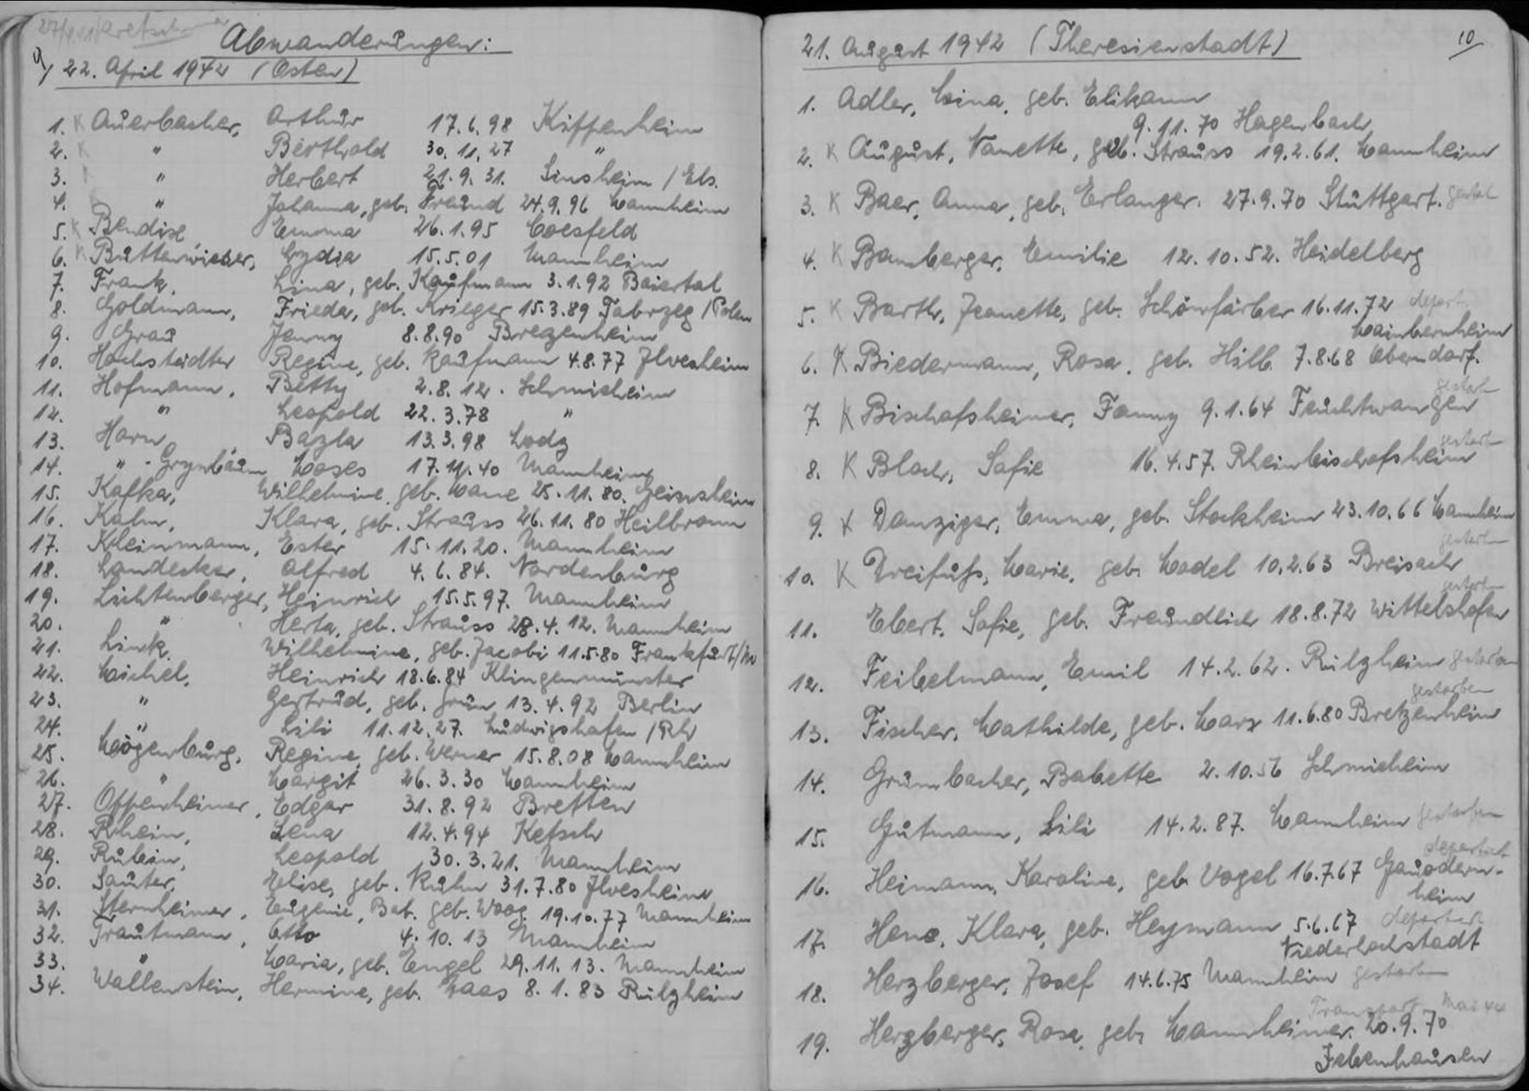 Abwanderungen:
a/ 22. April 1942 (Osten)
1. K Auerbacher, Arthur 17.6.98 Kippenheim
2. K " Berthold 30.11.27 "
3. " Herbert 21.9.31. Sinsheim / Els.
4. " Johanna, geb. Freund 24.9.96 Mannheim
5. K Bendix Emma 26.1.95 Coesfeld
6. K Butterwieser, Lydia 15.5.01 Mannheim
7. Frank, Lina, geb. Kaufmann 3.1.92 Baiertal
8. Goldmann, Frieda, geb. Krieger 15.3.89 /Polen
9. Grau Jenny 8.8.90 Brezenheim
10. Hochstädter Regine, geb. Kaufmann 4.8.77 Ilvesheim
11. Hofmann, Betty 2.8.12. Schmieheim
12. " Leopold 22.3.78 "
13. Horn, Bajla 13.3.98 Lodz
14. " - Grynbaum Moses 17.11.40 Mannheim
15. Kafka, Wilhelmine geb. Marx 25.11.80. Geinsheim
16. Kahn, Klara, geb. Strauss 26.11.80 Heilbronn
17. Kleinmann, Ester 15.11.20. Mannheim
18. Landecker, Alfred 4.6.84. Nordenburg
19. Lichtenberger, Heinrich 15.5.97. Mannheim
20. " Herta, geb. Strauss 28.4.12. Mannheim
21. Link, Wilhelmine, geb. Jacobi 11.5.80 Frankfurt/M
22. Michel, Heinrich 18.6.84 Klingenmünster
23. " Gertrud, geb. Grün 13.4.92 Berlin
24. " Lili 11.12.27. Ludwigshafen /Rh
25. Mögenburg, Regine, geb. Werner 15.8.08 Mannheim
26. " Margit 26.3.30 Mannheim
27. Oppenheimer, Edgar 31.8.92 Bretten
28. Rhein, Lena 12.4.94 Ketsch
29. Rubin, Leopold 30.3.21. Mannheim
30. Sauter, Elise, geb. Kuhn 31.7.80 Ilvesheim
31. Sternheimer, Eugenie, Bab. geb. Woog 19.10.77 Mannheim
32. Trautmann, Otto 4.10.13 Mannheim
33. " Maria, geb. Engel 29.11.13. Mannheim
34. Wallenstein, Hermine, geb. Haas 8.1.83 Rülzheim
21. August 1942 (Theresienstadt)
10
1. Adler, Mina, geb. Elikann
9.11.70 Hagenbach
2. K August, Nanette, geb. Strauss 19.2.61. Mannheim
3. K Baer, Anna, geb. Erlanger. 27.9.70 Stuttgart.
4. K Bamberger, Emilie 12.10.52. Heidelberg
5. K Barth, Jeanette, geb. Schönfärber 16.11.72 deport.
Mainbernheim
6. K Biedermann, Rosa, geb. Hilb 7.8.68 Oberndorf.
gestorb
7. K Bischofsheimer, Fanny 9.1.64 Feuchtwangen
gestorb
8. K Bloch, Sofie 16.4.57. Rheinbischofsheim
9. K Danziger, Emma, geb. Stockheim 23.10.66 Mannheim
gestorb
10. K Dreifuss, Marie, geb. Model 10.2.63 Breisach
gestorb
11. Ebert, Sofie, geb. Freundlich 18.8.72 Wittelshofen
12. Feibelmann, Emil 14.2.62. Rülzheim gestorben
gestorben
13. Fischer, Mathilde, geb. Marx 11.6.80 Bretzenheim
14. Grünbacher, Babette 2.10.56 Schmieheim
15. Gutmann, Lili 14.2.87. Mannheim gestorben
deportiert
16. Heimann, Karoline, geb. Vogel 16.7.67 Gauodern-
heim
17. Hene, Klara, geb. Heymann 5.6.67 deportiert
Niederhochstadt
18. Herzberger, Josef 14.6.75 Mannheim gestorben
Transport Mai 44
19. Herzberger, Rosa, geb. Mannheimer, 20.9.70
Jebenhausen